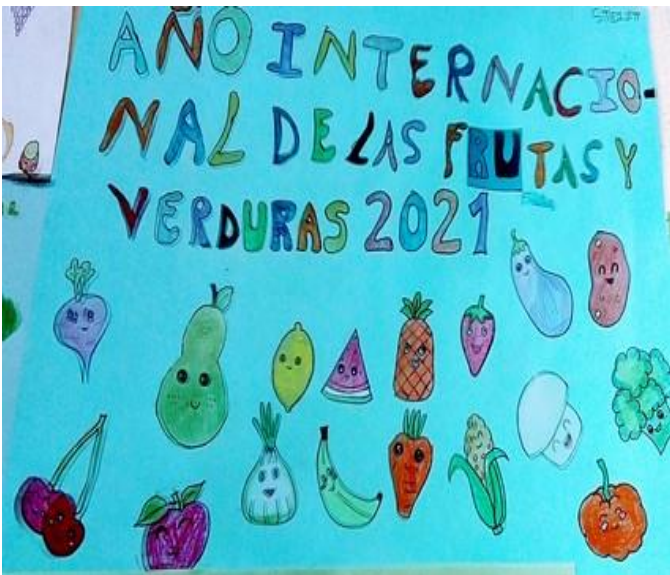 AÑO INTERNACIO-
NAL DE LAS FRUTAS Y
VERDURAS 2021